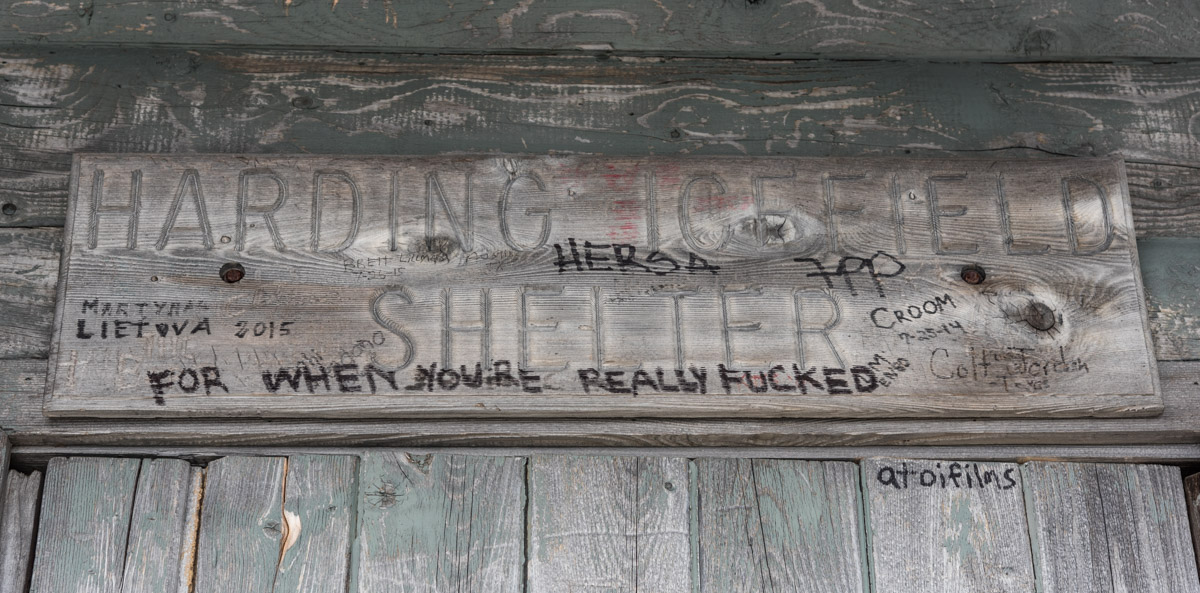 HARDING ICEFIELD
HERSA
BRETT
7-25-15
SHELTER
MARTYNAS
LIETUVA 2015
CROOM
7-25-14
Colt Jordan
Texas
FOR WHEN YOU'RE REALLY FUCKED
atoifilms